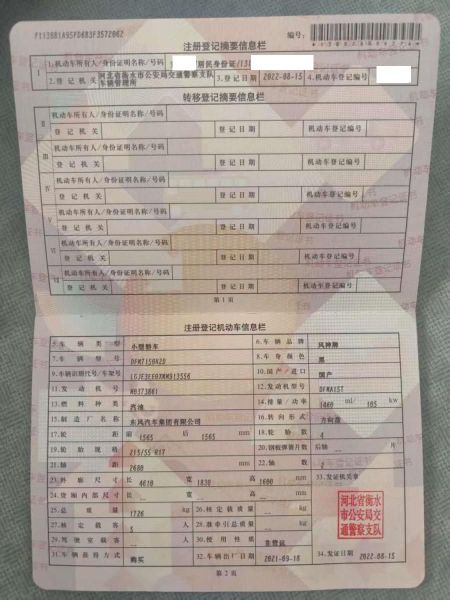 注册登记摘要信息栏
编号：
Ⅰ 1.机动车所有人/身份证明名称/号码 居民身份证/130
2.登记机关 河北省衡水市公安局交通警察支队车辆管理所 3.登记日期 2022-08-15 4.机动车登记编号
转移登记摘要信息栏
Ⅱ 机动车所有人/身份证明名称/号码
登记机关 登记日期 机动车登记编号
Ⅲ 机动车所有人/身份证明名称/号码
登记机关 登记日期 机动车登记编号
Ⅳ 机动车所有人/身份证明名称/号码
登记机关 登记日期 机动车登记编号
Ⅴ 机动车所有人/身份证明名称/号码
登记机关 登记日期 机动车登记编号
Ⅵ 机动车所有人/身份证明名称/号码
登记机关 登记日期 机动车登记编号
Ⅶ 机动车所有人/身份证明名称/号码
登记机关 登记日期 机动车登记编号
第1页
注册登记机动车信息栏
5.车辆类型 小型轿车 6.车辆品牌 风神牌
7.车辆型号 8.车身颜色 黑
9.车辆识别代号/车架号 10.国产/进口 国产
11.发动机号 12.发动机型号 DFMA15T
13.燃料种类 汽油 14.排量/功率 ml/ kw
15.制造厂名称 东风汽车集团有限公司 16.转向形式 方向盘
17.轮距 前 1565 后 1565 mm 18.轮胎数 4
19.轮胎规格 215/55 R17 20.钢板弹簧片数 后轴 -- 片
21.轴距 2680 mm 22.轴数 2
23.外廓尺寸 长 4610 宽 1830 高 1600 mm 33.发证机关章
24.货厢内部尺寸 长 -- 宽 -- 高 -- mm
25.总质量 1726 kg 26.核定载质量 -- kg
27.核定载客 5 人 28.准牵引总质量 -- kg
29.驾驶室载客 -- 人 30.使用性质 非营运
31.车辆获得方式 购买 32.车辆出厂日期 2021-09-18 34.发证日期 2022-08-15
河北省衡水
市公安局交
通警察支队
第2页